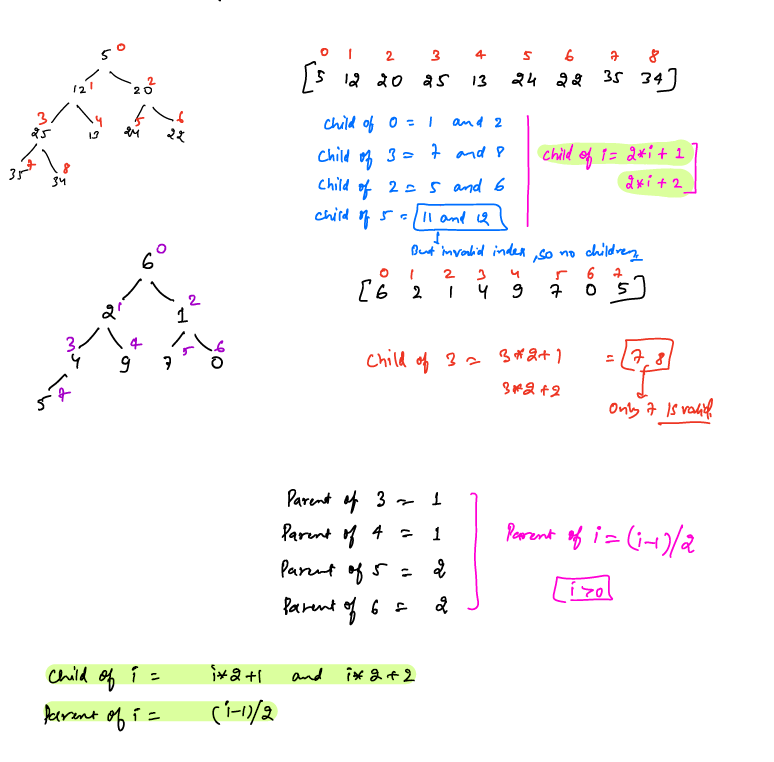 5 0
12 1 20 2
3 4 5 6
25 13 24 22
7 8
35 34
0 1 2 3 4 5 6 7 8
[5 12 20 25 13 24 22 35 34]
Child of 0 = 1 and 2
Child of 3 = 7 and 8
Child of 2 = 5 and 6
Child of 5 = 11 and 12
But invalid index, so no children
Child of i = 2*i + 1
2*i + 2
6 0
2 1 1 2
3 4 5 6
4 9 7 0
5 7
0 1 2 3 4 5 6 7
[6 2 1 4 9 7 0 5]
Child of 3 = 3*2+1 = 7 8
3*2+2
Only 7 is valid.
Parent of 3 = 1
Parent of 4 = 1
Parent of 5 = 2
Parent of 6 = 2
Parent of i = (i-1)/2
i>0
Child of i = i*2+1 and i*2+2
Parent of i = (i-1)/2